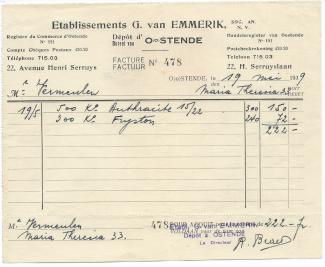 Etablissements G. van EMMERIK, SOC. AN. N. V.
Registre du Commerce d'Ostende
Nº 191
Compte Chèques Postaux
Téléphone 715.03
22, Avenue Henri Serruys
Dépôt d' OOSTENDE
Handelsregister van Oostende
Postcheckrekening
Telefoon 715.03
22, H. Serruyslaan
FACTURE
FACTUUR Nº 478
OOSTENDE, le 19 mei 1939
den
Mr Vermeulen Maria Theresia 33
19/5 500 Kº Anthracite 15/22 300 150 -
300 Kº Fryston 240 72 -
222 -
Mr Vermeulen
Maria Theresia 33.
478 POUR ACQUIT 222 - fr
VOLDAAN
Etabl. G. van EMMERIK
Dépôt à OSTENDE
Le Directeur